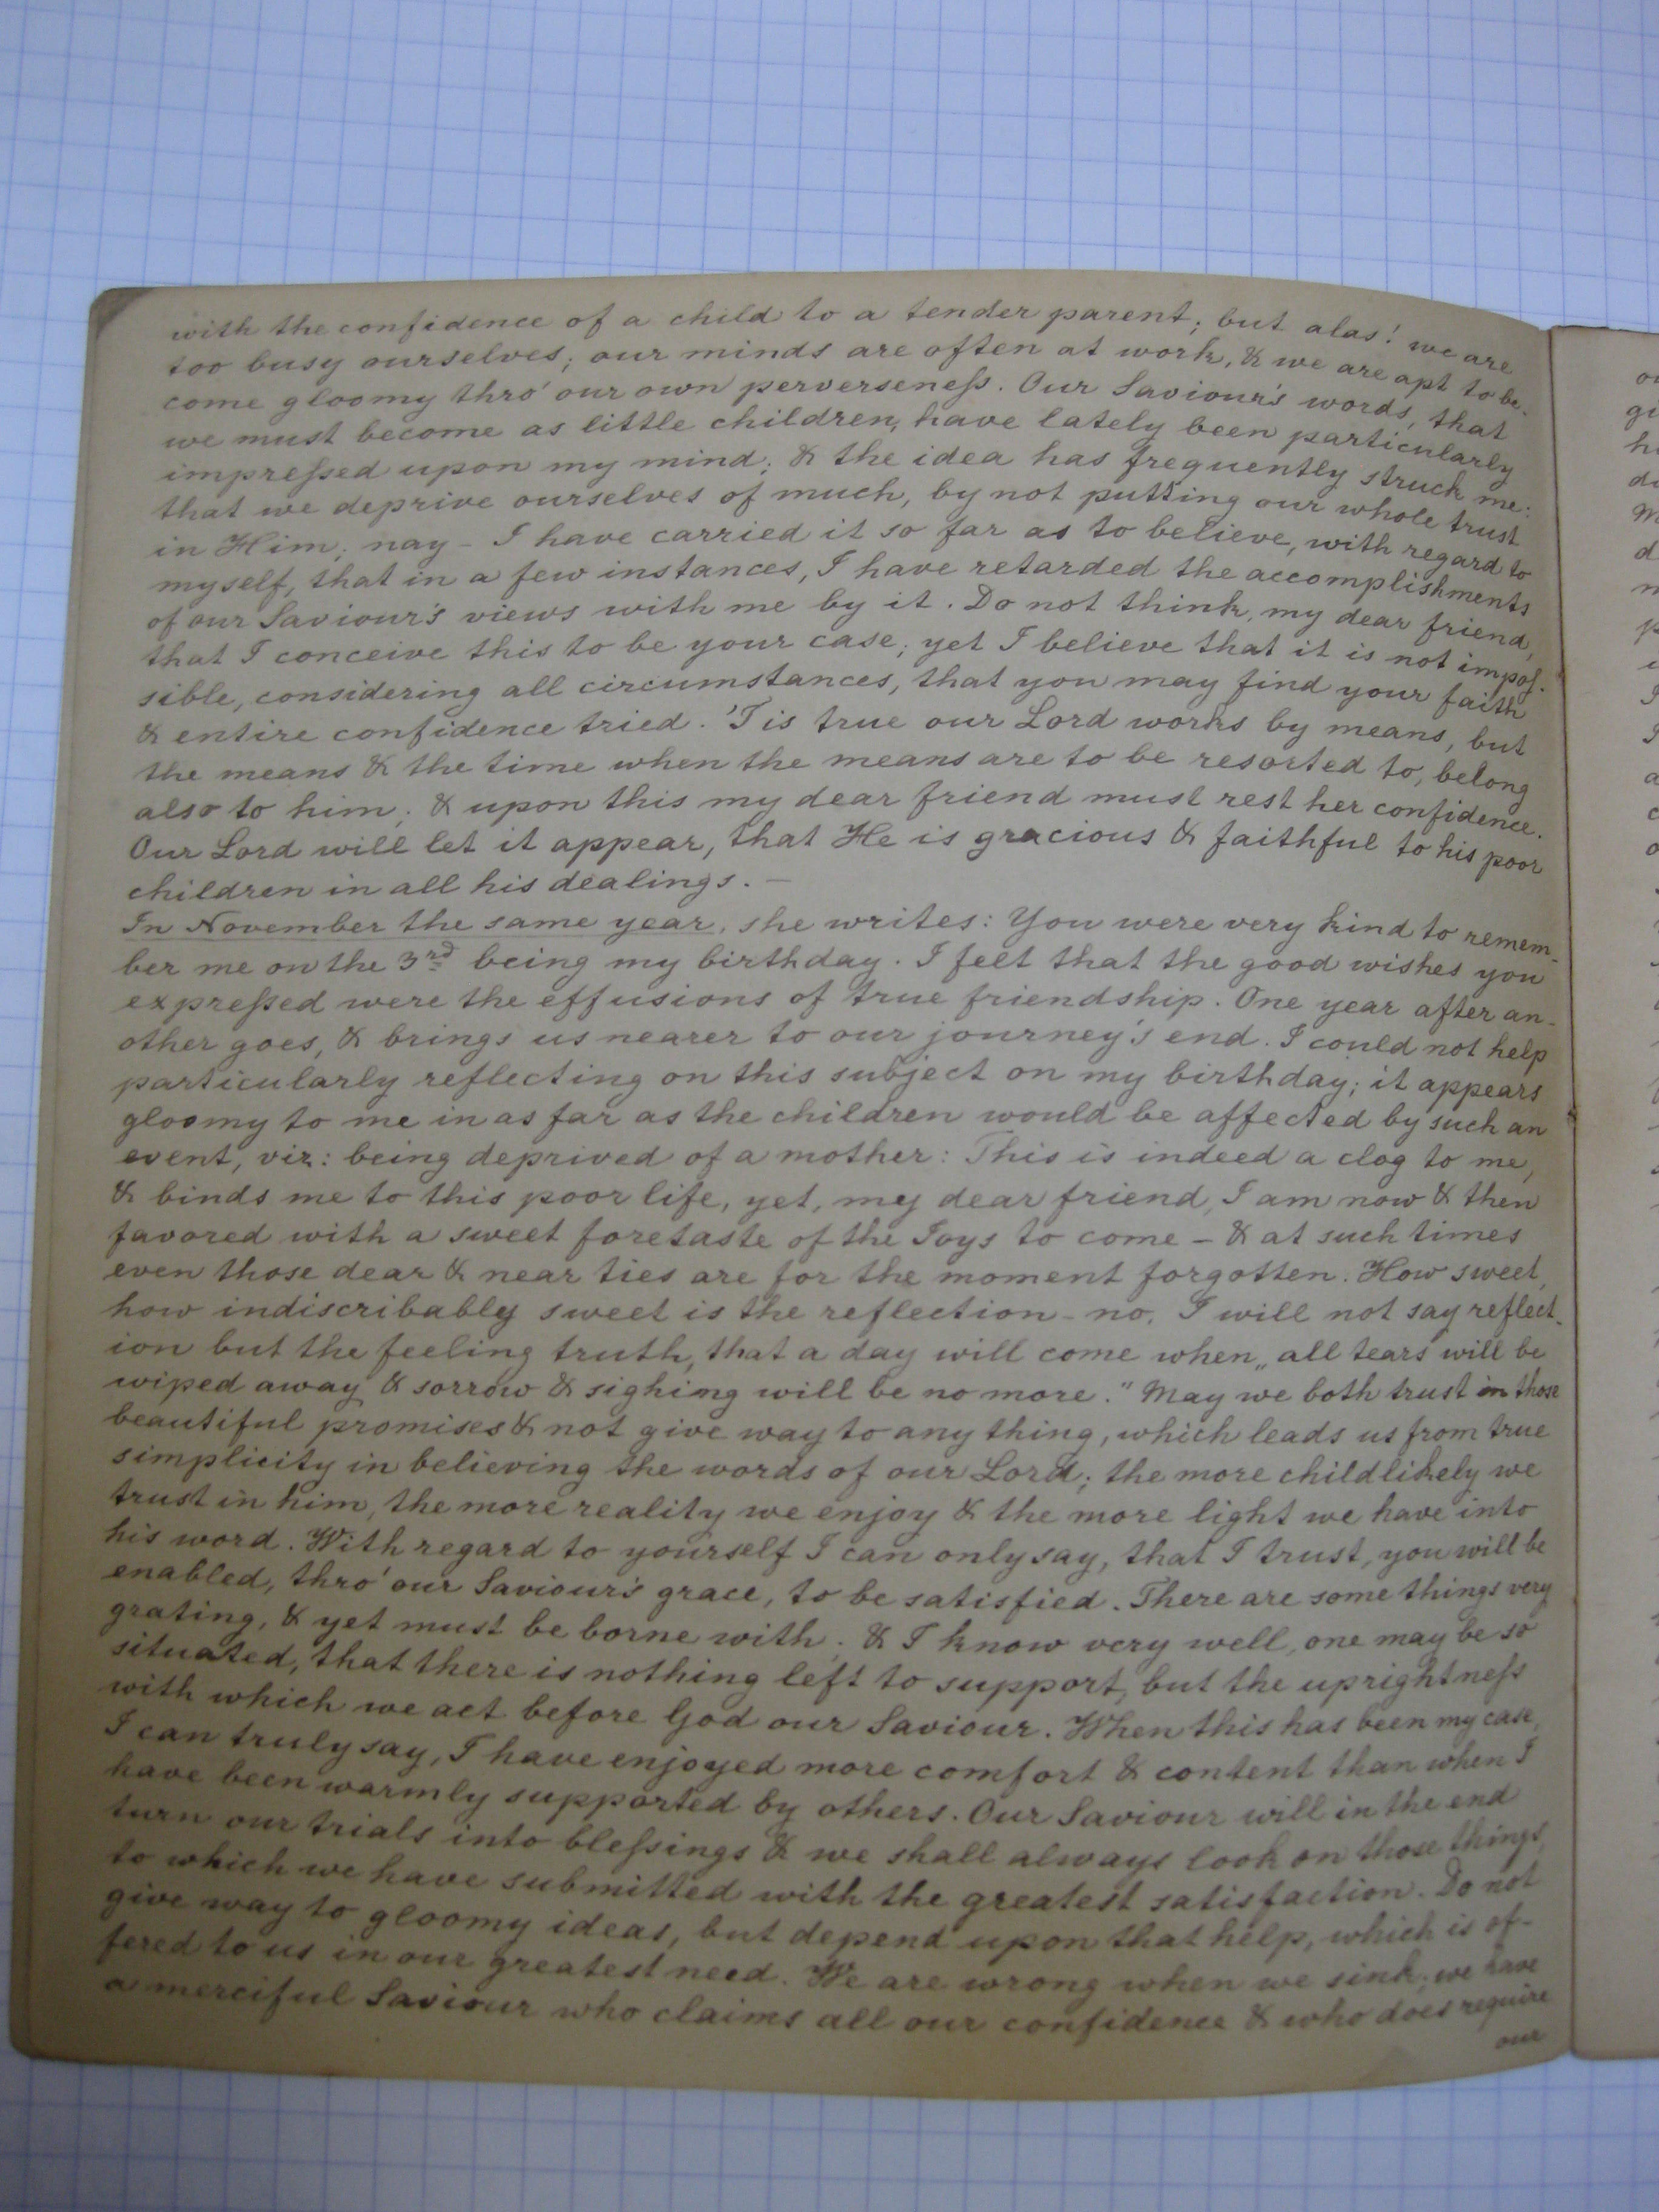 with the confidence of a child to a tender parent; but alas! we are
too busy ourselves; our minds are often at work, & we are apt to be-
come gloomy thro' our own perverseneſs. Our Saviour's words, that
we must become as little children, have lately been particularly
impreſsed upon my mind; & the idea has frequently struck me:
that we deprive ourselves of much, by not putting our whole trust
in Him; nay – I have carried it so far as to believe, with regard to
myself, that in a few instances, I have retarded the accomplishments
of our Saviour's views with me by it. Do not think, my dear friend,
that I conceive this to be your case; yet I believe that it is not impoſ-
sible, considering all circumstances, that you may find your faith
& entire confidence tried. 'Tis true our Lord works by means, but
the means & the time when the means are to be resorted to, belong
also to him; & upon this my dear friend must rest her confidence.
Our Lord will let it appear, that He is gracious & faithful to his poor
children in all his dealings. –
In November the same year, she writes: You were very kind to remem-
ber me on the 3rd being my birthday. I feel that the good wishes you
expreſsed were the effusions of true friendship. One year after an-
other goes, & brings us nearer to our journey's end. I could not help
particularly reflecting on this subject on my birthday; it appears
gloomy to me in as far as the children would be affected by such an
event, viz: being deprived of a mother: This is indeed a clog to me,
& binds me to this poor life, yet, my dear friend, I am now & then
favored with a sweet foretaste of the Joys to come – & at such times
even those dear & near ties are for the moment forgotten. How sweet,
how indiscribably sweet is the reflection – no, I will not say reflect-
ion but the feeling truth, that a day will come when „all tears will be
wiped away & sorrow & sighing will be no more." May we both trust in those
beautiful promises & not give way to any thing, which leads us from true
simplicity in believing the words of our Lord; the more childlikely we
trust in him, the more reality we enjoy & the more light we have into
his word. With regard to yourself I can only say, that I trust, you will be
enabled, thro' our Saviour's grace, to be satisfied. There are some things very
grating, & yet must be borne with; & I know very well, one may be so
situated, that there is nothing left to support, but the uprightneſs
with which we act before God our Saviour. When this has been my case,
I can truly say, I have enjoyed more comfort & content than when I
have been warmly supported by others. Our Saviour will in the end
turn our trials into bleſsings & we shall always look on those things,
to which we have submitted with the greatest satisfaction. Do not
give way to gloomy ideas, but depend upon that help, which is of-
fered to us in our greatest need. We are wrong when we sink; we have
a merciful Saviour who claims all our confidence & who does require
our